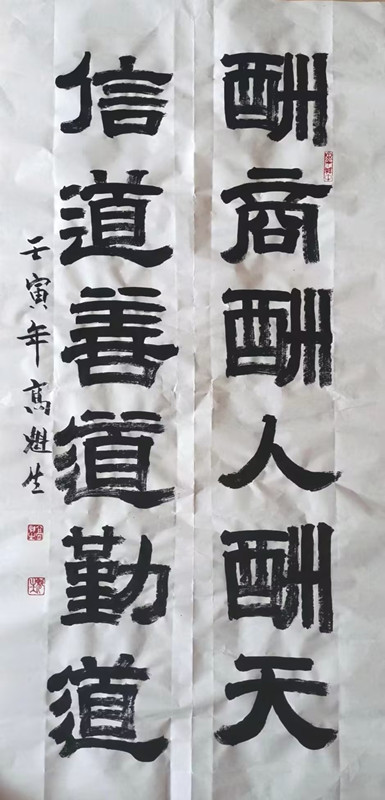 酬商酬人酬天
信道善道勤道
壬寅年高魁生